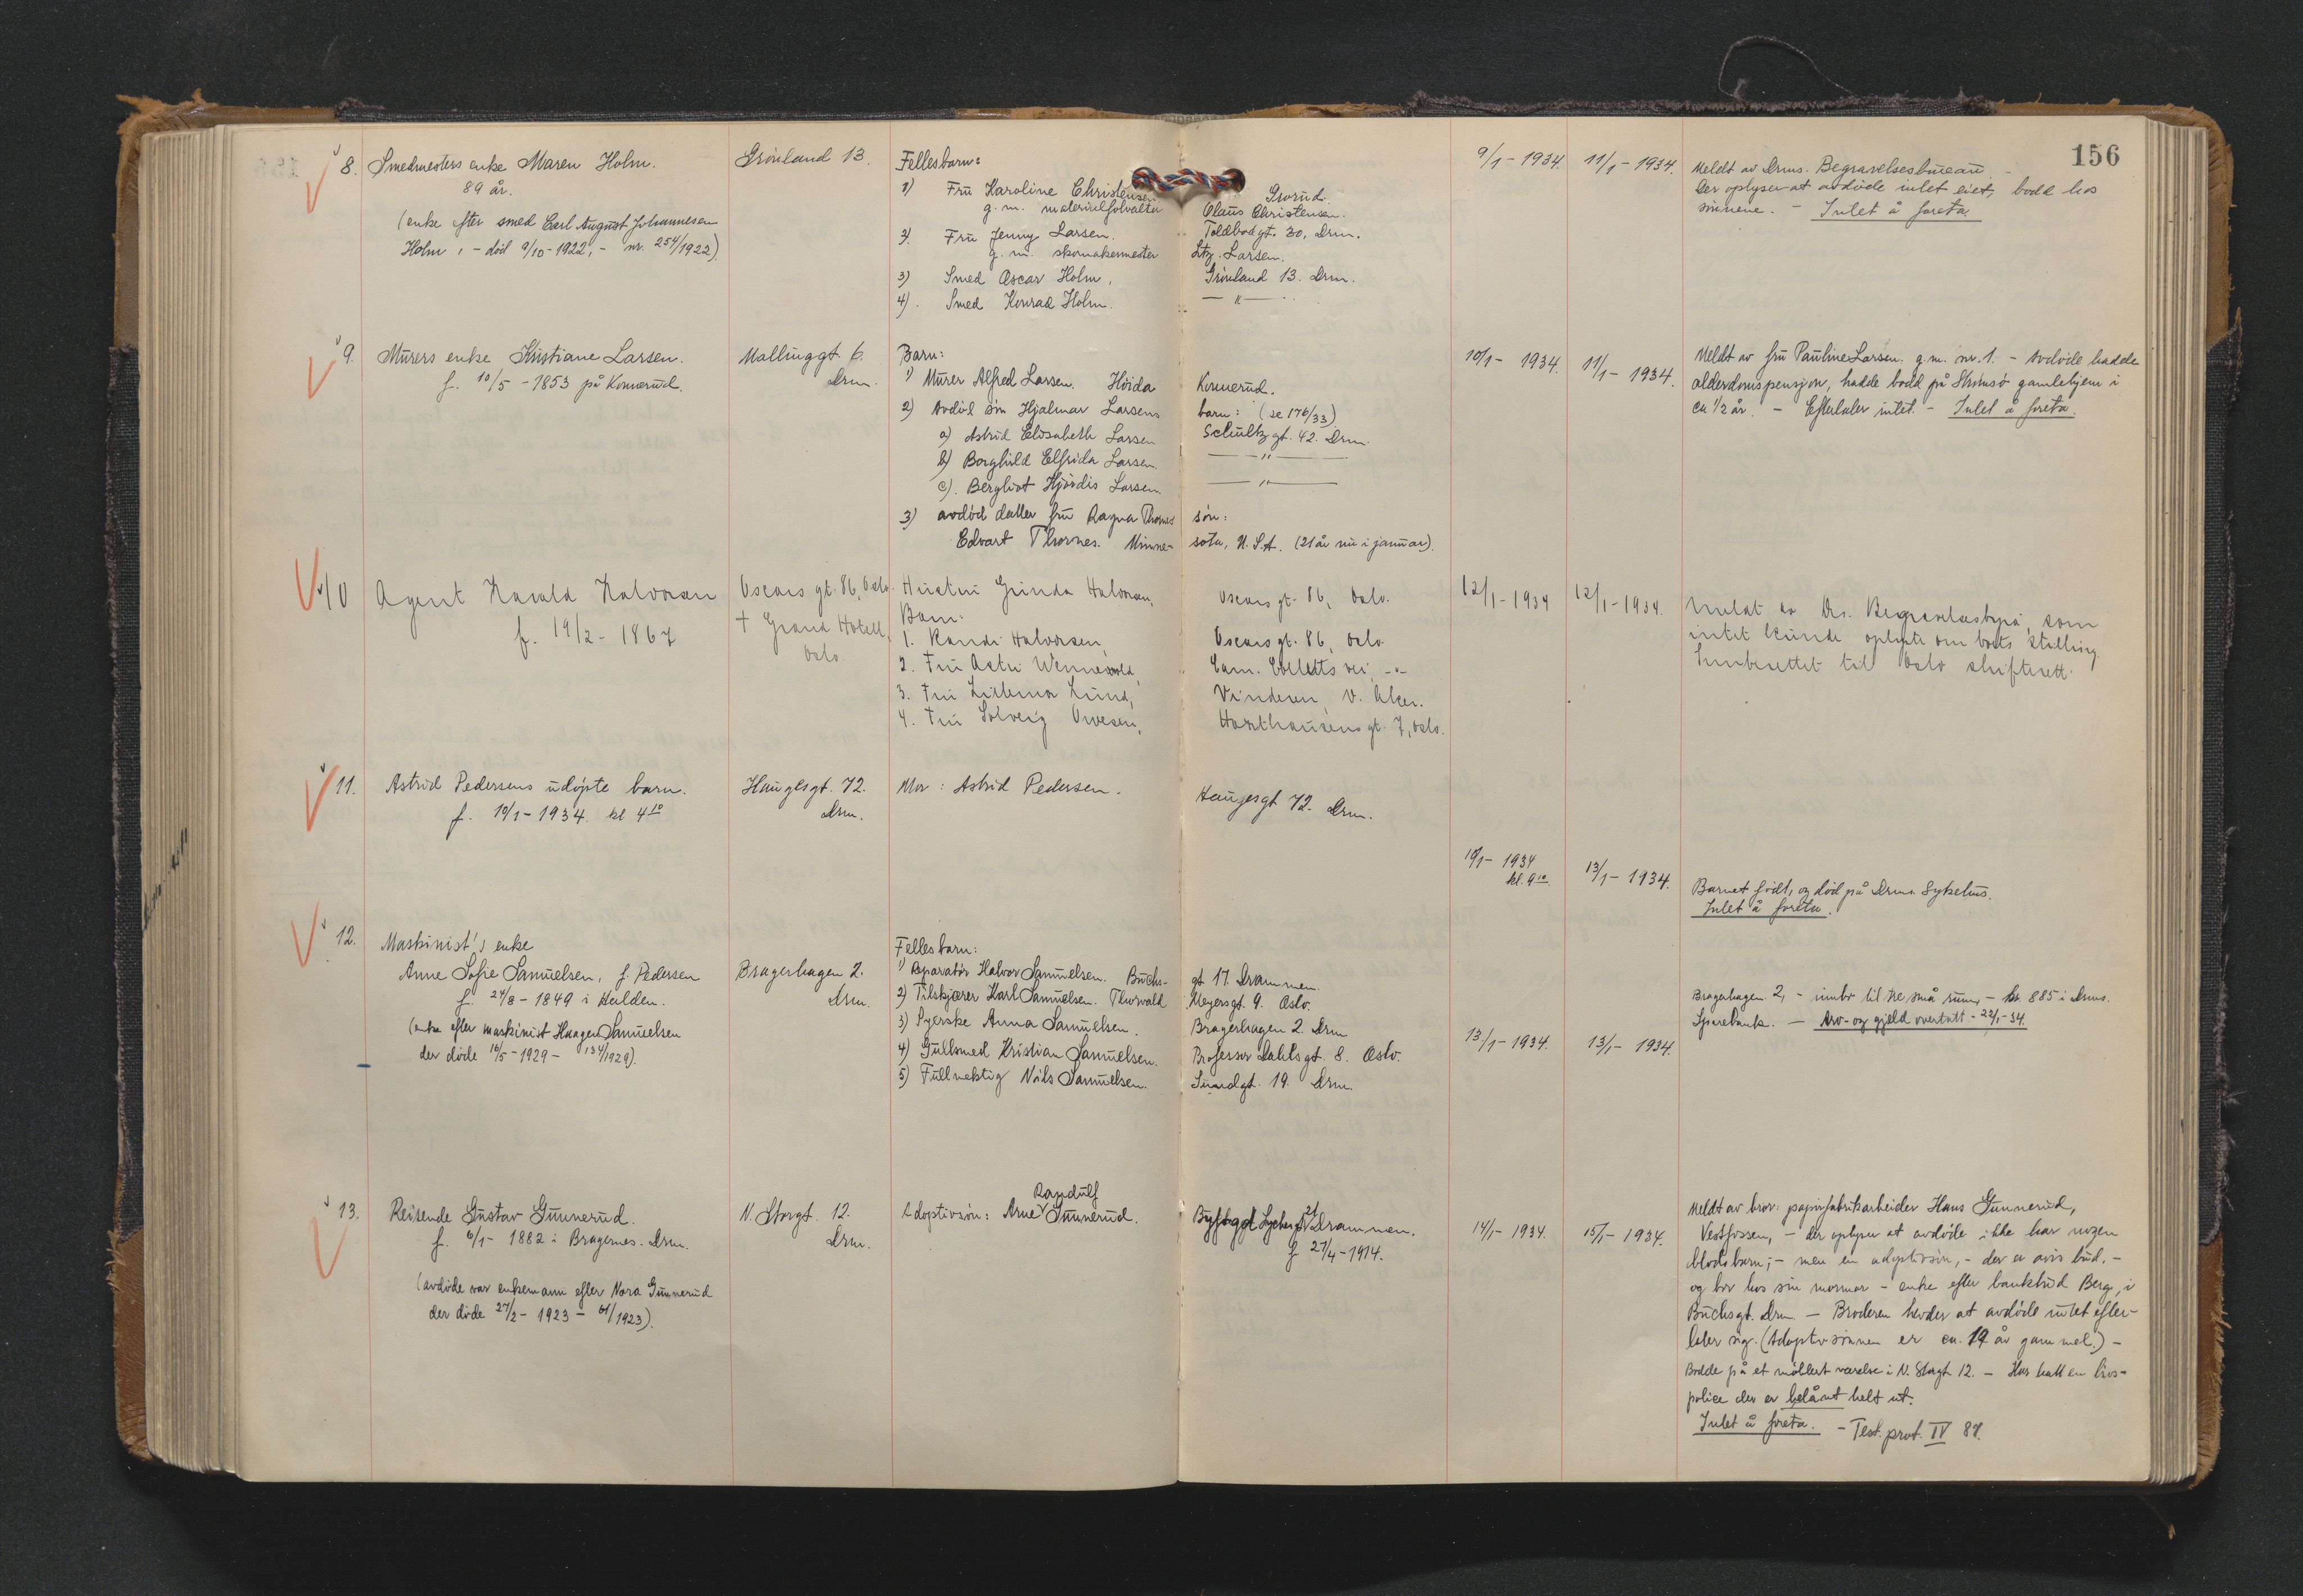 156
8. Smedmesters enke Maren Holm.
89 år.
(enke efter smed Carl August Johannesen
Holm, - död 9/10-1922, - nr. 254/1922).
Grönland 13.
Fellesbarn:
1) Fru Karoline Christensen Grorud.
g.m. materialforvalter Olaus Christensen.
2) Fru Jenny Larsen. Toldbodgt. 30, Drm.
g.m. skomakermester Larsen.
3) Smed Oscar Holm, Grönland 13. Drm.
4) Smed Konrad Holm. — " —
9/1-1934. 11/1-1934.
Meldt av Drms. Begravelsesbureau. -
Der oplyser at avdöde intet eiet, bodd hos
sönnene. - Intet å foreta.
9. Murers enke Kristiane Larsen.
f. 10/5-1853 på Konnerud.
Mallinggt. 6.
Drm.
Barn:
1) Murer Alfred Larsen. Höida Konnerud.
2) Avdöd sön Hjalmar Larsens barn: (se 176/33)
a) Astrid Elisabeth Larsen Schultzgt. 42. Drm.
b) Borghild Elfrida Larsen. — " —
c). Bergliot Hjördis Larsen — " —
3) avdöd datter fru Ragna Thornes sön:
Edvart Thornes. Minnesota, U.S.A. (21 år nu i januar).
10/1-1934. 11/1-1934.
Meldt av fru Pauline Larsen. g.m. nr. 1. - Avdöde hadde
alderdomspensjon, hadde bodd på Strömsö gamlehjem i
ca 1/2 år. - Efterlater intet. - Intet å foreta.
10 Agent Harald Halvorsen
f. 19/2-1867
Oscars gt. 86, Oslo.
† Grand Hotell,
Oslo
Hustru Halvorsen, Oscars gt. 86, Oslo.
Barn:
1. Randi Halvorsen, Oscars gt. 86, Oslo
2. Fru Wennevold, Cam. Colletts vei, -"-
3. Fru Lillemor Lund, Vinderen, V. Aker.
4. Fru Solveig Owesen, Harelthausens gt. 7, Oslo.
12/1-1934 12/1-1934.
Meldt av Drs. Begravelsesbyrå, som
intet kunde oplyse om boets stilling.
Innberettet til Oslo skifterett.
11. Astrid Pedersens udöpte barn.
f. 10/1-1934 kl 4 10
Haugesgt. 72.
Drm.
Mor: Astrid Pedersen. Haugesgt 72. Drm.
10/1-1934
kl. 9 10. 13/1-1934.
Barnet födt, og död på Drm. Sykehus.
Intet å foreta.
12. Maskinist's enke
Anne Sofie Samuelsen, f. Pedersen
f. 24/8-1849 i Halden.
(enke efter maskinist Haagen Samuelsen
der döde 16/5-1929 - 134/1929).
Bragerhagen 2.
Drm.
Fellesbarn:
1) Reparatör Halvor Samuelsen. Buchsgt 17. Drammen.
2) Tilskjærer Karl Samuelsen. Thorvald Meyersgt. 9. Oslo.
3) Syerske Anna Samuelsen. Bragerhagen 2. Drm
4) Gullsmed Kristian Samuelsen. Professor Dahlsgt. 8. Oslo.
5) Fullmektig Nils Samuelsen. Sundgt. 19. Drm.
13/1-1934. 13/1-1934.
Bragerhagen 2, - innbo til tre små rum, - kr. 885 i Drms.
Sparebank. — Arv- og gjeld overtatt - 22/1-34.
13. Reisende Gustav Gunnerud.
f. 6/1-1882 i Bragernes. Drm.
(avdöde var enkemann efter Nora Gunnerud
der döde 27/2-1923 - 61/1923).
N. Storgt. 12.
Drm.
Adoptivsön: Arne Randulf Gunnerud. Drammen.
f 27/4-1914.
14/1-1934. 15/1-1934.
Meldt av bror: papirfabrikarbeider Hans Gunnerud,
Vestfossen, - der oplyser at avdöde ikke har nogen
blodsbarn; - men en adoptivsön, - der er avis bud. -
og bor hos sin mormor - enke efter bankbud Berg, i
Buchsgt. Drm — Broderen hevder at avdöde intet efter-
later sig. (Adoptivsönnen er ca. 19 år gammel.) -
Bodde på et möblert værelse i N. Storgt 12. - Har hatt en livs-
police der er belånt helt ut.
Intet å foreta. - Test. prot. IV 88.